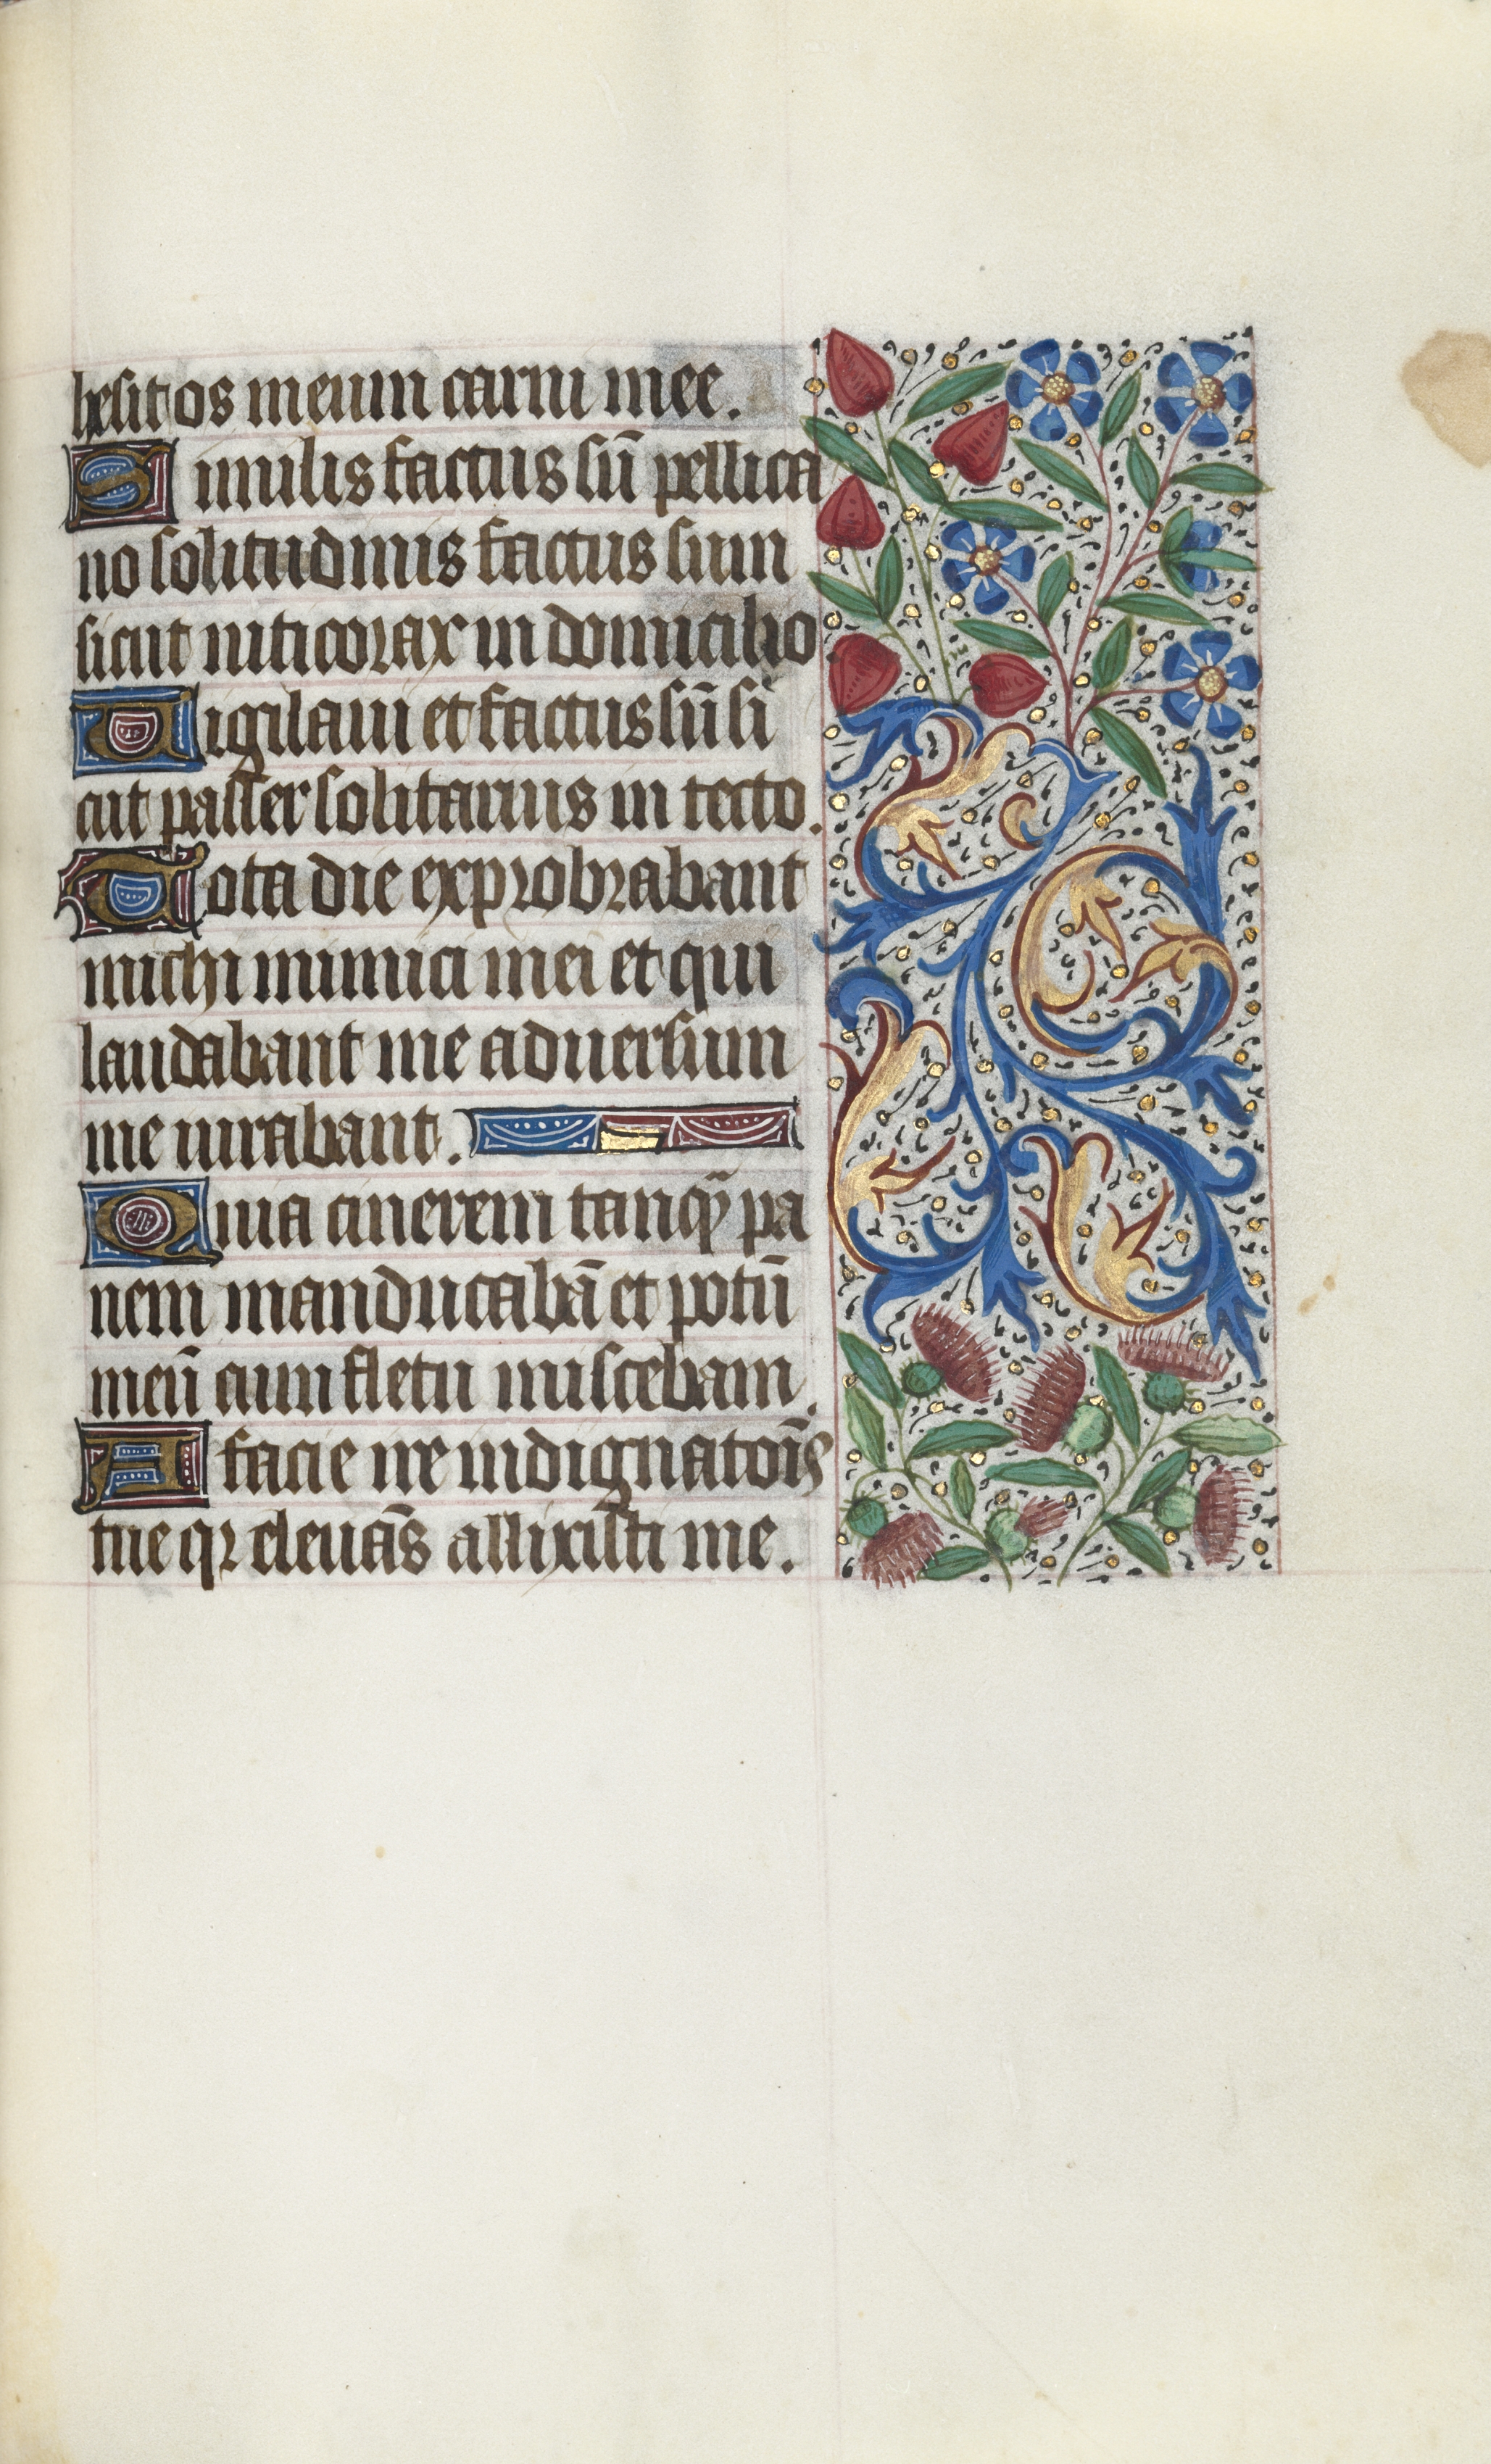 hesit os meum carni mee.
Similis factus sū pellica
no solitudinis factus sum
sicut niticorax in domicilio
Vigilaui et factus sū si
cut passer solitarius in tecto.
Tota die exprobrabant
michi inimici mei et qui
laudabant me aduersum
me iurabant.
Quia cinerem tanqȝ pa
nem manducabā et potū
meū cum fletu miscebam.
A facie ire indignatōīs
tue qr eleuās allixisti me.